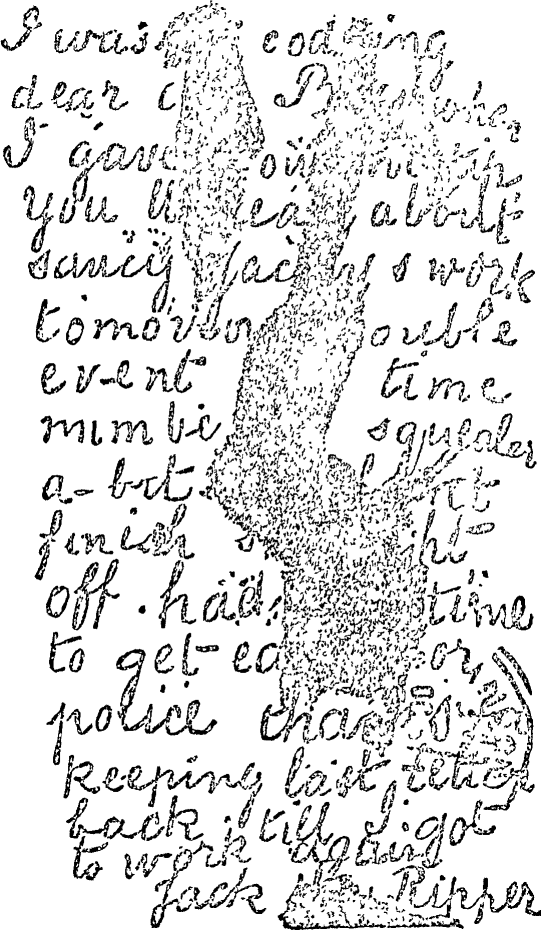 I was codding
dear when
I gave you tip
you hear about
saucy Jacky s work
tomorrow double
event time
number squealed
a bit
finish
off. had time
to get
police thanks
keeping last letter
back till I got
to work again
Jack the Ripper